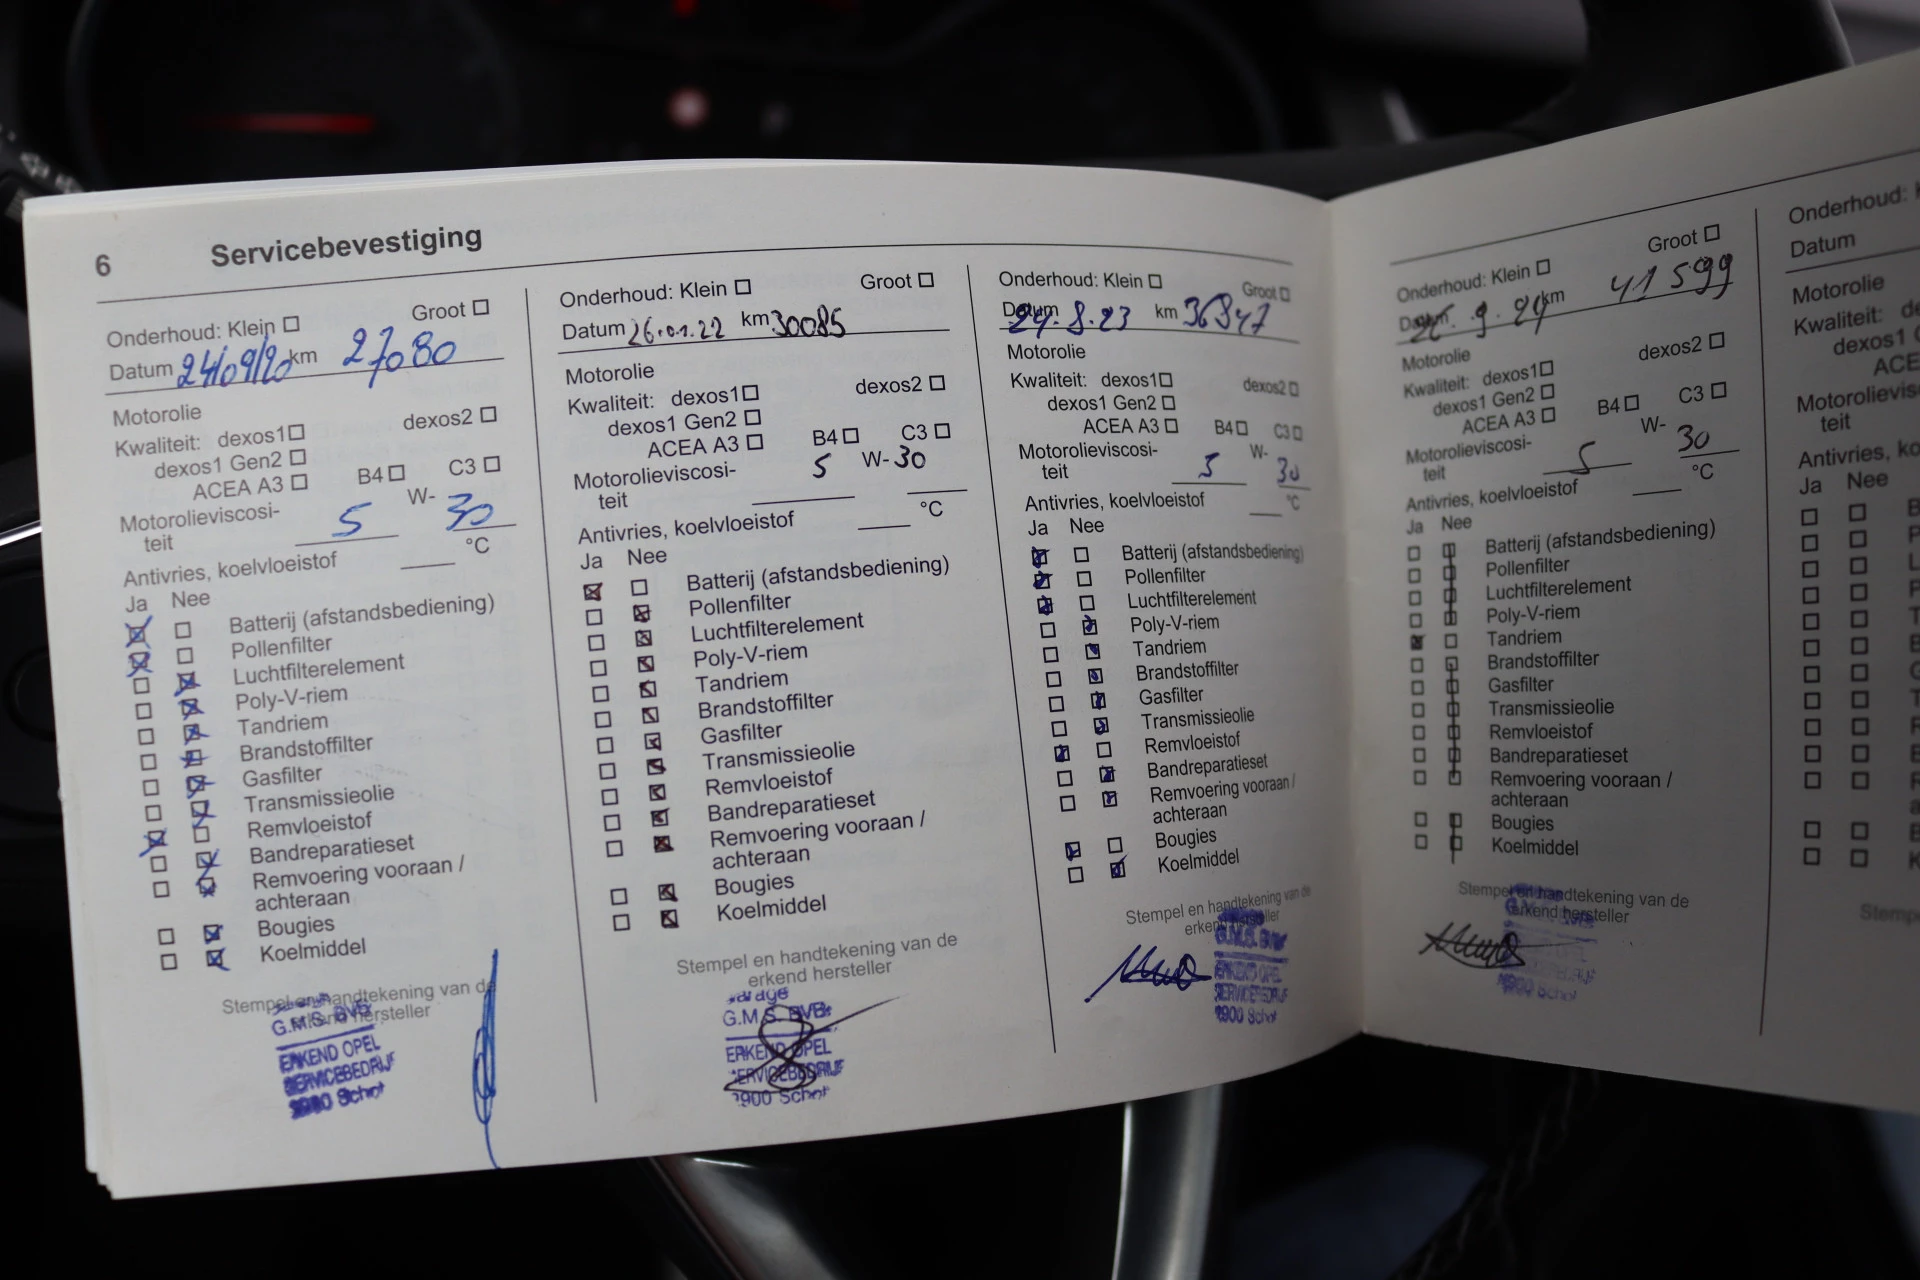 6 Servicebevestiging
Onderhoud: Klein ☐ Groot ☐
Datum 24/09/20 km 27080
Motorolie
Kwaliteit: dexos1 ☐ dexos2 ☐
dexos1 Gen2 ☐
ACEA A3 ☐ B4 ☐ C3 ☐
Motorolieviscosi- 5 W- 30
teit
Antivries, koelvloeistof °C
Ja Nee
Batterij (afstandsbediening)
Pollenfilter
Luchtfilterelement
Poly-V-riem
Tandriem
Brandstoffilter
Gasfilter
Transmissieolie
Remvloeistof
Bandreparatieset
Remvoering vooraan /
achteraan
Bougies
Koelmiddel
Stempel en handtekening van de
erkend hersteller
G.M.S. BVB
ERKEND OPEL
SERVICEBEDRIJF
Schot
Onderhoud: Klein ☐ Groot ☐
Datum 26.01.22 km 30085
Motorolie
Kwaliteit: dexos1 ☐ dexos2 ☐
dexos1 Gen2 ☐
ACEA A3 ☐ B4 ☐ C3 ☐
Motorolieviscosi- 5 W- 30
teit
Antivries, koelvloeistof °C
Ja Nee
Batterij (afstandsbediening)
Pollenfilter
Luchtfilterelement
Poly-V-riem
Tandriem
Brandstoffilter
Gasfilter
Transmissieolie
Remvloeistof
Bandreparatieset
Remvoering vooraan /
achteraan
Bougies
Koelmiddel
Stempel en handtekening van de
erkend hersteller
G.M.S. BVB
ERKEND OPEL
SERVICEBEDRIJF
Schot
Onderhoud: Klein ☐ Groot ☐
Datum 8.23 km 36847
Motorolie
Kwaliteit: dexos1 ☐ dexos2 ☐
dexos1 Gen2 ☐
ACEA A3 ☐ B4 ☐ C3 ☐
Motorolieviscosi- 5 W- 30
teit
Antivries, koelvloeistof °C
Ja Nee
Batterij (afstandsbediening)
Pollenfilter
Luchtfilterelement
Poly-V-riem
Tandriem
Brandstoffilter
Gasfilter
Transmissieolie
Remvloeistof
Bandreparatieset
Remvoering vooraan /
achteraan
Bougies
Koelmiddel
Stempel en handtekening van de
erkend hersteller
G.M.S. BVB
ERKEND OPEL
SERVICEBEDRIJF
Schot
Onderhoud: Klein ☐ Groot ☐
Datum 9.24 km 41599
Motorolie
Kwaliteit: dexos1 ☐ dexos2 ☐
dexos1 Gen2 ☐
ACEA A3 ☐ B4 ☐ C3 ☐
Motorolieviscosi- 5 W- 30
teit
Antivries, koelvloeistof °C
Ja Nee
Batterij (afstandsbediening)
Pollenfilter
Luchtfilterelement
Poly-V-riem
Tandriem
Brandstoffilter
Gasfilter
Transmissieolie
Remvloeistof
Bandreparatieset
Remvoering vooraan /
achteraan
Bougies
Koelmiddel
Stempel en handtekening van de
erkend hersteller
Schot
Onderhoud:
Datum
Motorolie
Kwaliteit:
dexos1
ACE
Motorolievis
teit
Antivries, ko
Ja Nee
Stemp